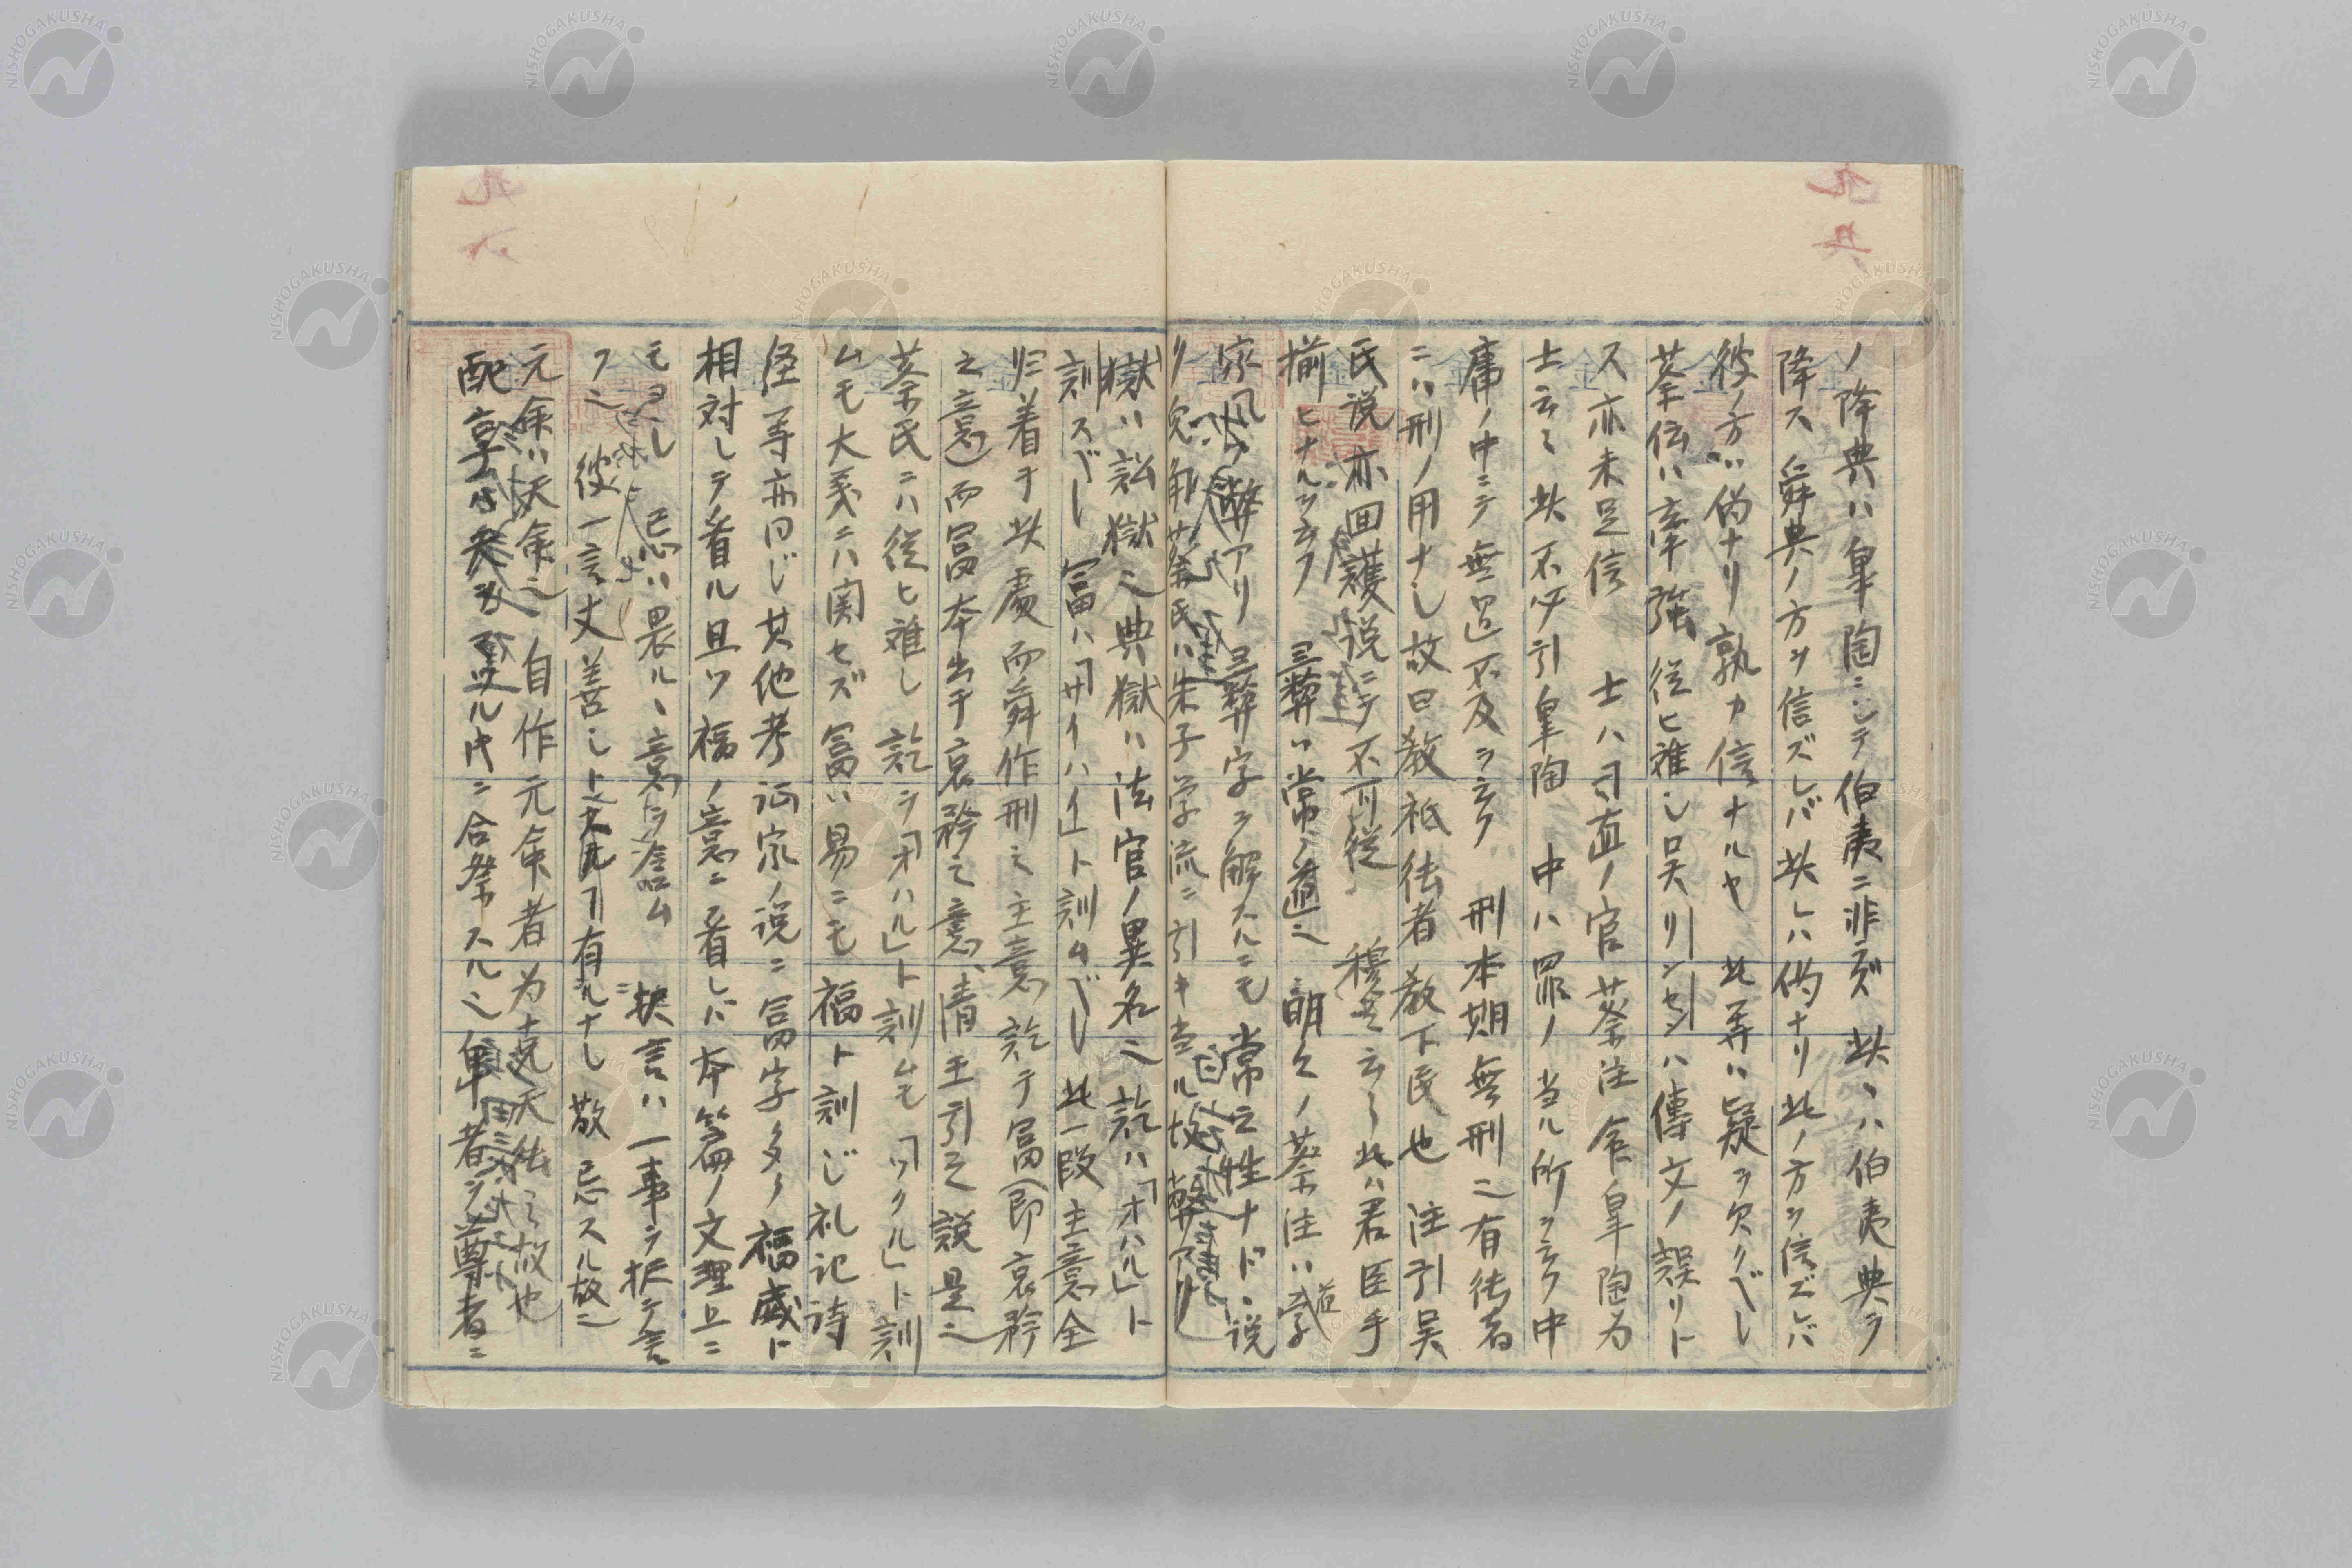 ノ降典ハ皐陶ニシテ伯夷ニ非ズ 此ヽハ伯夷典ヲ
降ス 舜典ノ方ヲ信ズレバ此レハ偽ナリ此ノ方ヲ信ズレバ
彼ノ方ガ偽ナリ 孰カ信ナルヤ 此等ハ疑ヲ欠クベし
蔡伝ハ牽強従ヒ難し呉リンセンハ傳文ノ誤リト
ス亦未足信 士ハ司直ノ官蔡注 命皐陶为
士云々此不必引皐陶 中ハ罪ノ当ル所ヲ云フ中
庸ノ中ニテ無過不及ヲ云フ 刑本期無刑ニ有徳者
ニハ刑ノ用ナし故曰教祗徳者教下民也 注引吴
氏说亦回護说ニテ不可從 穆々云々此ハ君臣手
揃ヒナルヲ云フ 三彝ハ常ノ道也 明々ノ蔡注ハ道学
家風ノ弊アリ 三彝字ヲ解スルニモ常之性ナドヽ说
ク兎角蔡氏ハ朱子学流ニ引キ当ル故弊アリ
獄ハ訟獄也典獄ハ法官ノ異名也訖ハ「オハル」ト
訓スベし 富ハ「サイハイ」ト訓ムベし 此一段主意全
归着于此處而舜作刑之主意訖于富(即哀矜
之意)而富本出于哀矜之意、清王引之説是也
蔡氏ニハ従ヒ難し訖ヲ「オハル」ト訓ムモ「ツクル」ト訓
ムモ大義ニハ関セズ富ハ易ニモ 福ト訓じ礼记詩
経等亦同じ其他考证家ノ说ニ富字多ク福威ト
相対しテ看ル且ツ福ノ意ニ看レバ本篇ノ文理上ニ
モヨし 忌ハ畏ルヽ意ヲ含ム 択言ハ一事ヲ択テ言
フ也 彼一言丈善しト云フ有ルナし 敬忌スル故也
元命ハ天命也 自作元命者为克天徳之故也
配享ハ 合祭スル也 卑者ヲ尊者ニ